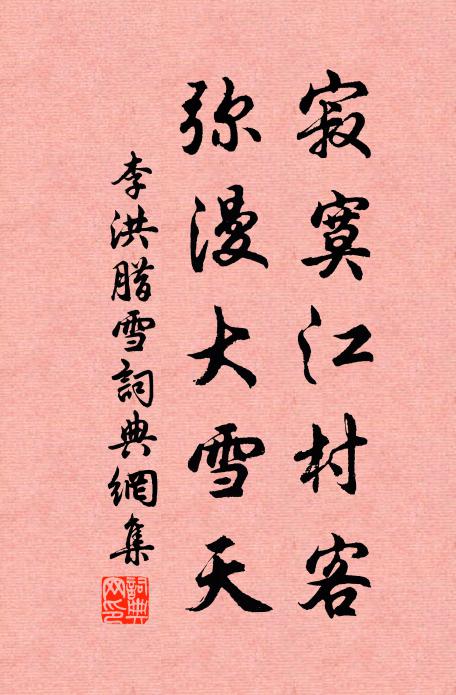 寂寞江村客
弥漫大雪天
李洪腊雪詞典網集
詞典網印